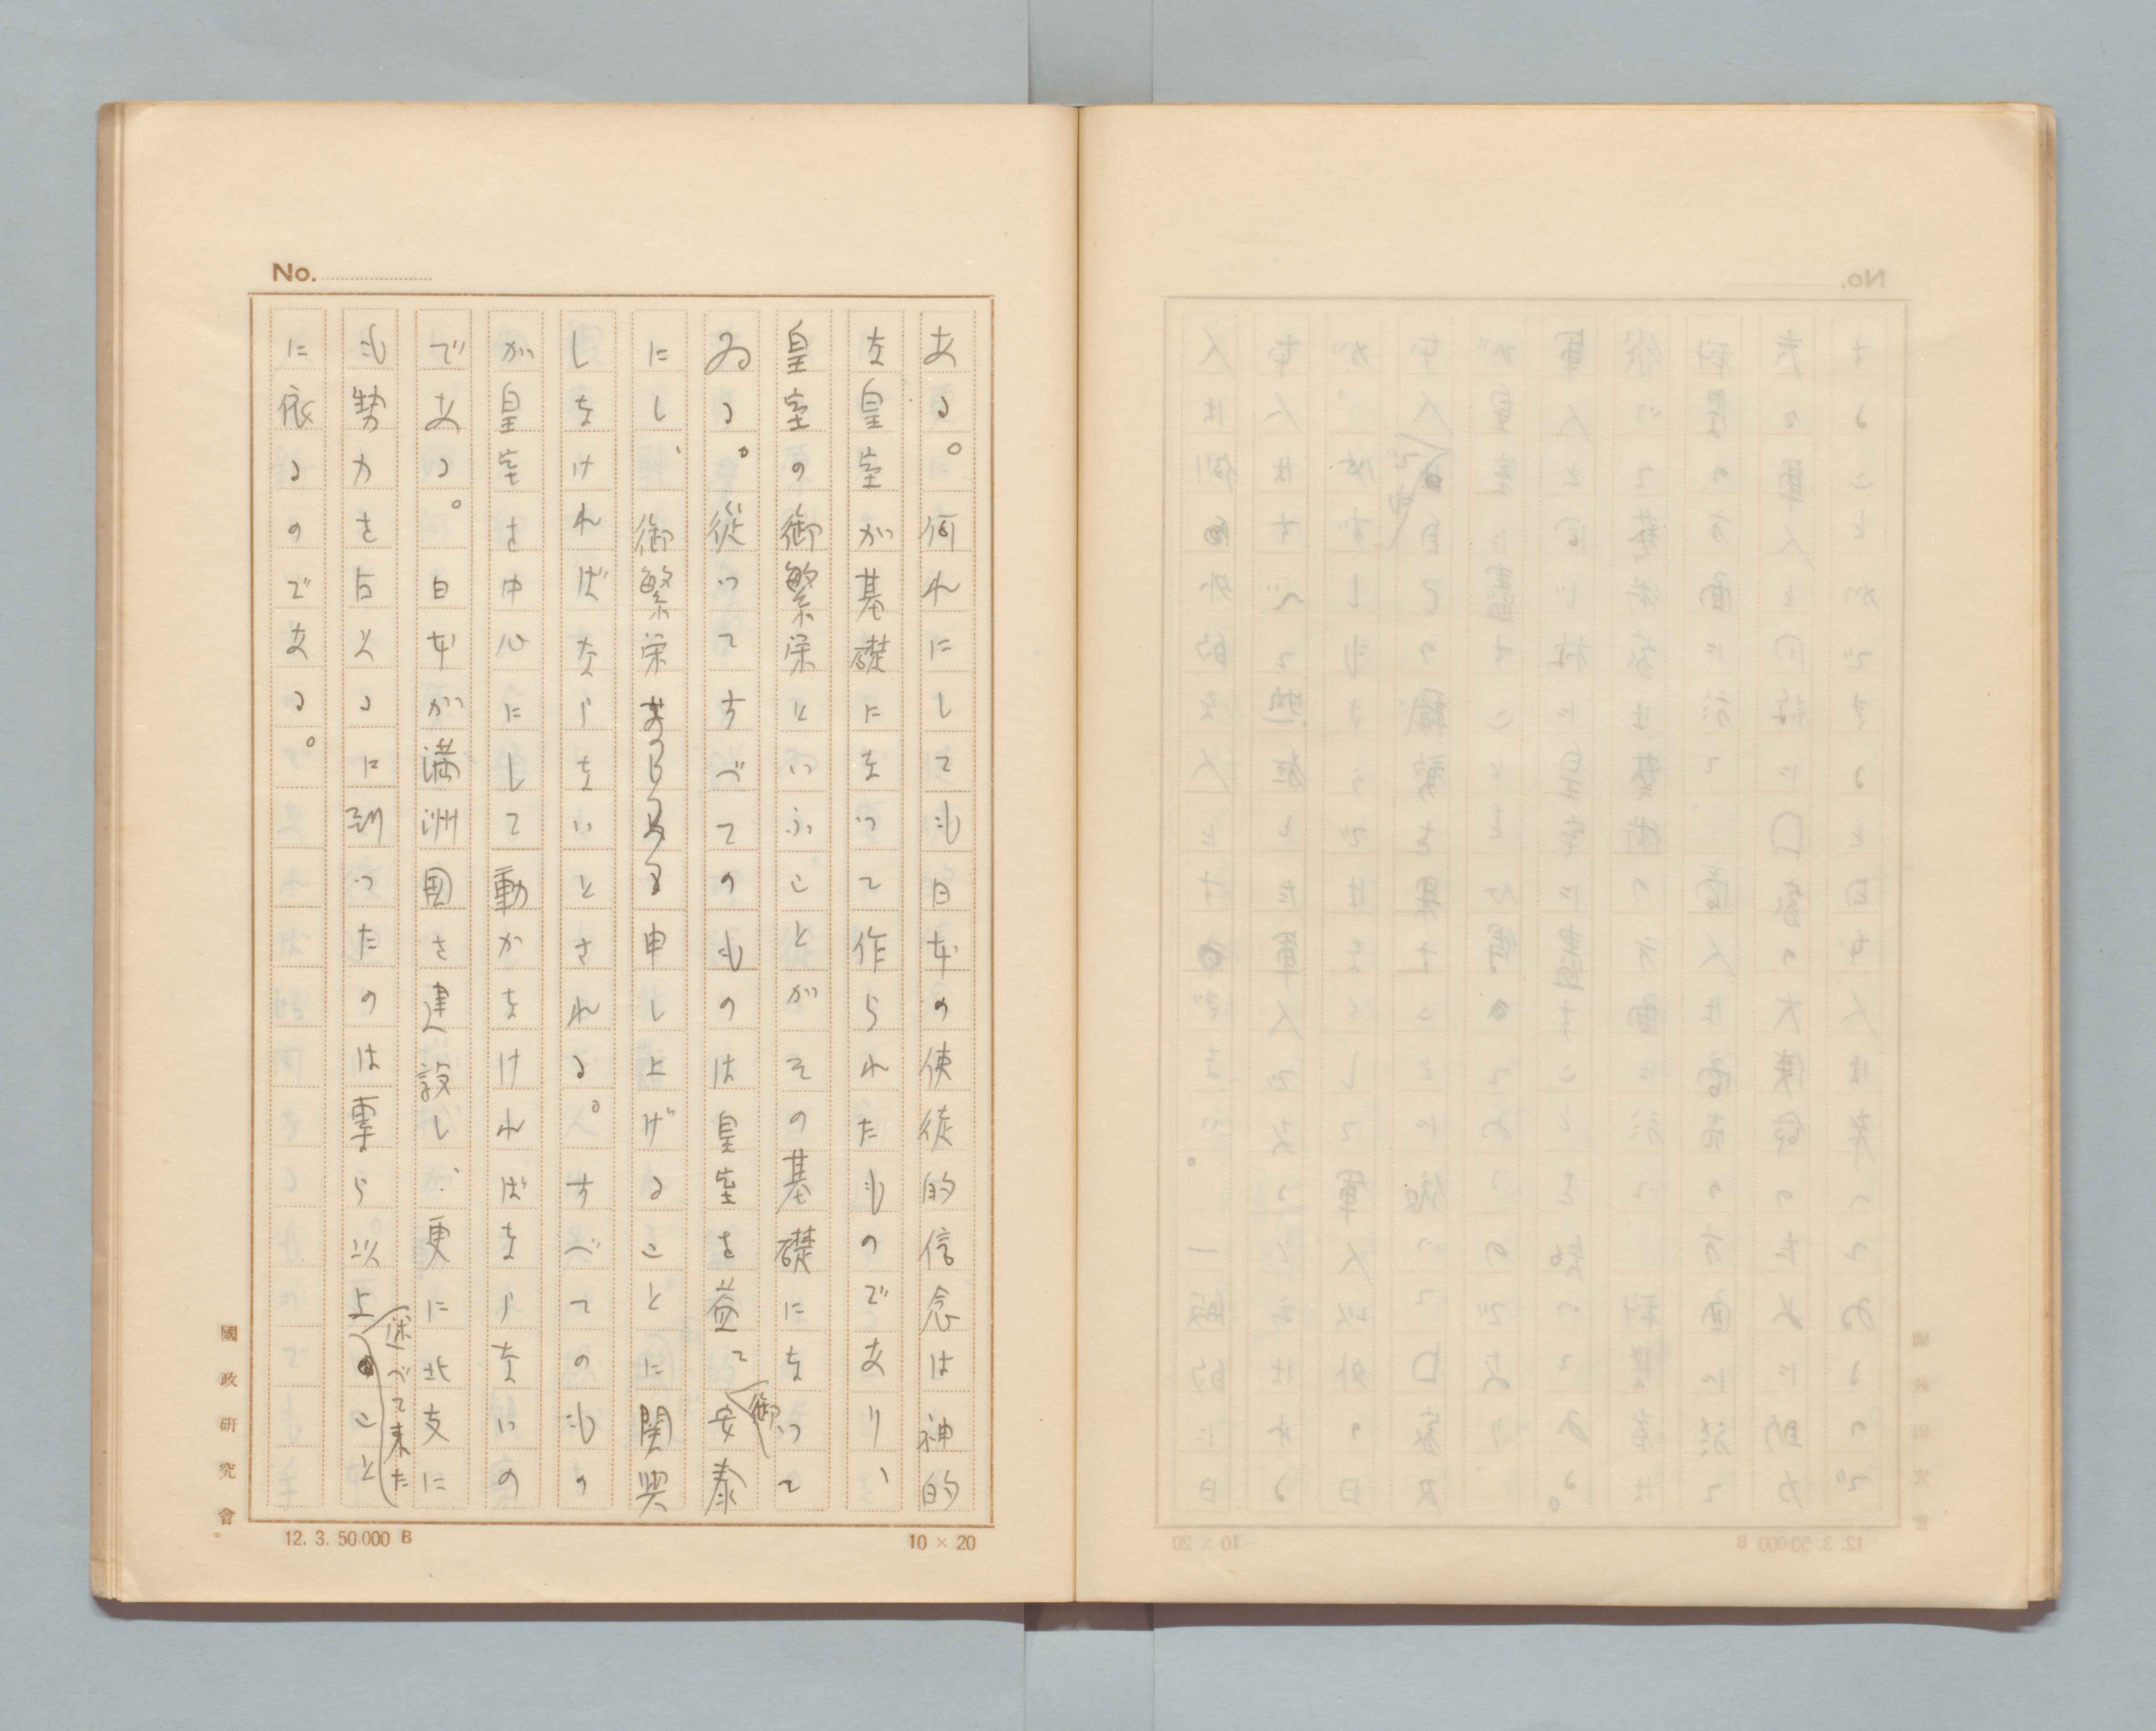 No.
ある。何れにしても日本の使徒的信念は神的
な皇室が基礎になつて作られたものであり、
皇室の御繁栄といふことがその基礎になつて
ゐる。従つてすべてのものは皇室を益て御安泰
にし、御繁栄申し上げることに関興
しなければならないとされる。すべてのもの
が皇室を中心にして動かなければならないの
である。日本が満洲国を建設し、更に北支に
も勢力を占めるに到つたのは専ら以上述べて来たこと
に依るのである。
國政研究會
12. 3. 50.000 B
10 × 20